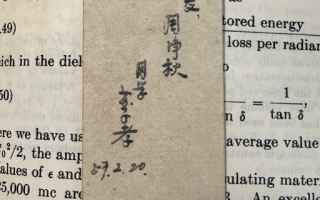 .49)
tored energy
loss per radian
周净秋
ich in the diel
同学
50)
= 1
tan δ
tan δ
ere we have us
average value
²/2, the amp
57.2.20.
alues of ε and
ulating mater
5,000 mc are
An excelle